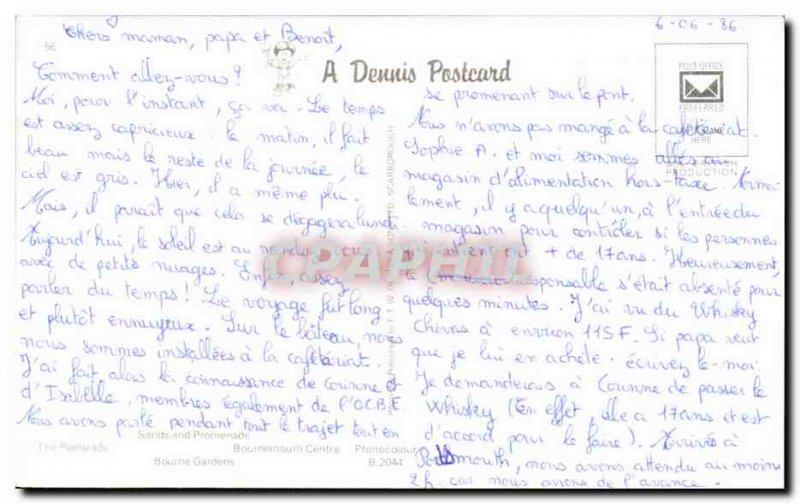 6-06-86
Chers maman, papa et Benoit,
56
A Dennis Postcard
POST OFFICE
PREFERRED
HERE
PRODUCTION
Comment allez-vous?
Moi, pour l'instant, ça va. Le temps
est assez capricieux: le matin, il fait
beau mais le reste de la journée, le
ciel est gris. Hier, il a même plu.
Mais, il paraît que cela se dégagera lundi
Aujourd'hui, le soleil est au rendez-vous
avec de petits nuages. Enfin, assez
parler du temps! Le voyage fut long
et plutôt ennuyeux. Sur le bateau, nous
nous sommes installées à la cafétériat.
J'ai fait alors la connaissance de Corinne et
d'Isabelle, membres également de l'O.C.B.E.
Nous avons parlé pendant tout le trajet tout en
se promenant sur le pont.
Nous n'avons pas mangé à la cafétériat.
Sophie A. et moi sommes allées au
magasin d'alimentation hors-taxe. Norma-
lement, il y a quelqu'un, à l'entrée du
magasin pour contrôler si les personnes
qui entrent ont + de 17 ans. Heureusement,
le responsable s'était absenté pour
quelques minutes. J'ai vu du Whisky
Chivas à environ 115F. Si papa veut
que je lui en achète. écrivez-le-moi.
Je demanderais à Corinne de passer le
Whisky (En effet, elle a 17 ans et est
d'accord pour le faire). Arrivés à
Portsmouth, nous avons attendu au moins
2h. car nous avions de l'avance.
SCARBOROUGH
CPAPHIL
Sands and Promenade
The Pierheads
Bournemouth Centre
Photocolour
Bourne Gardens
B.2044